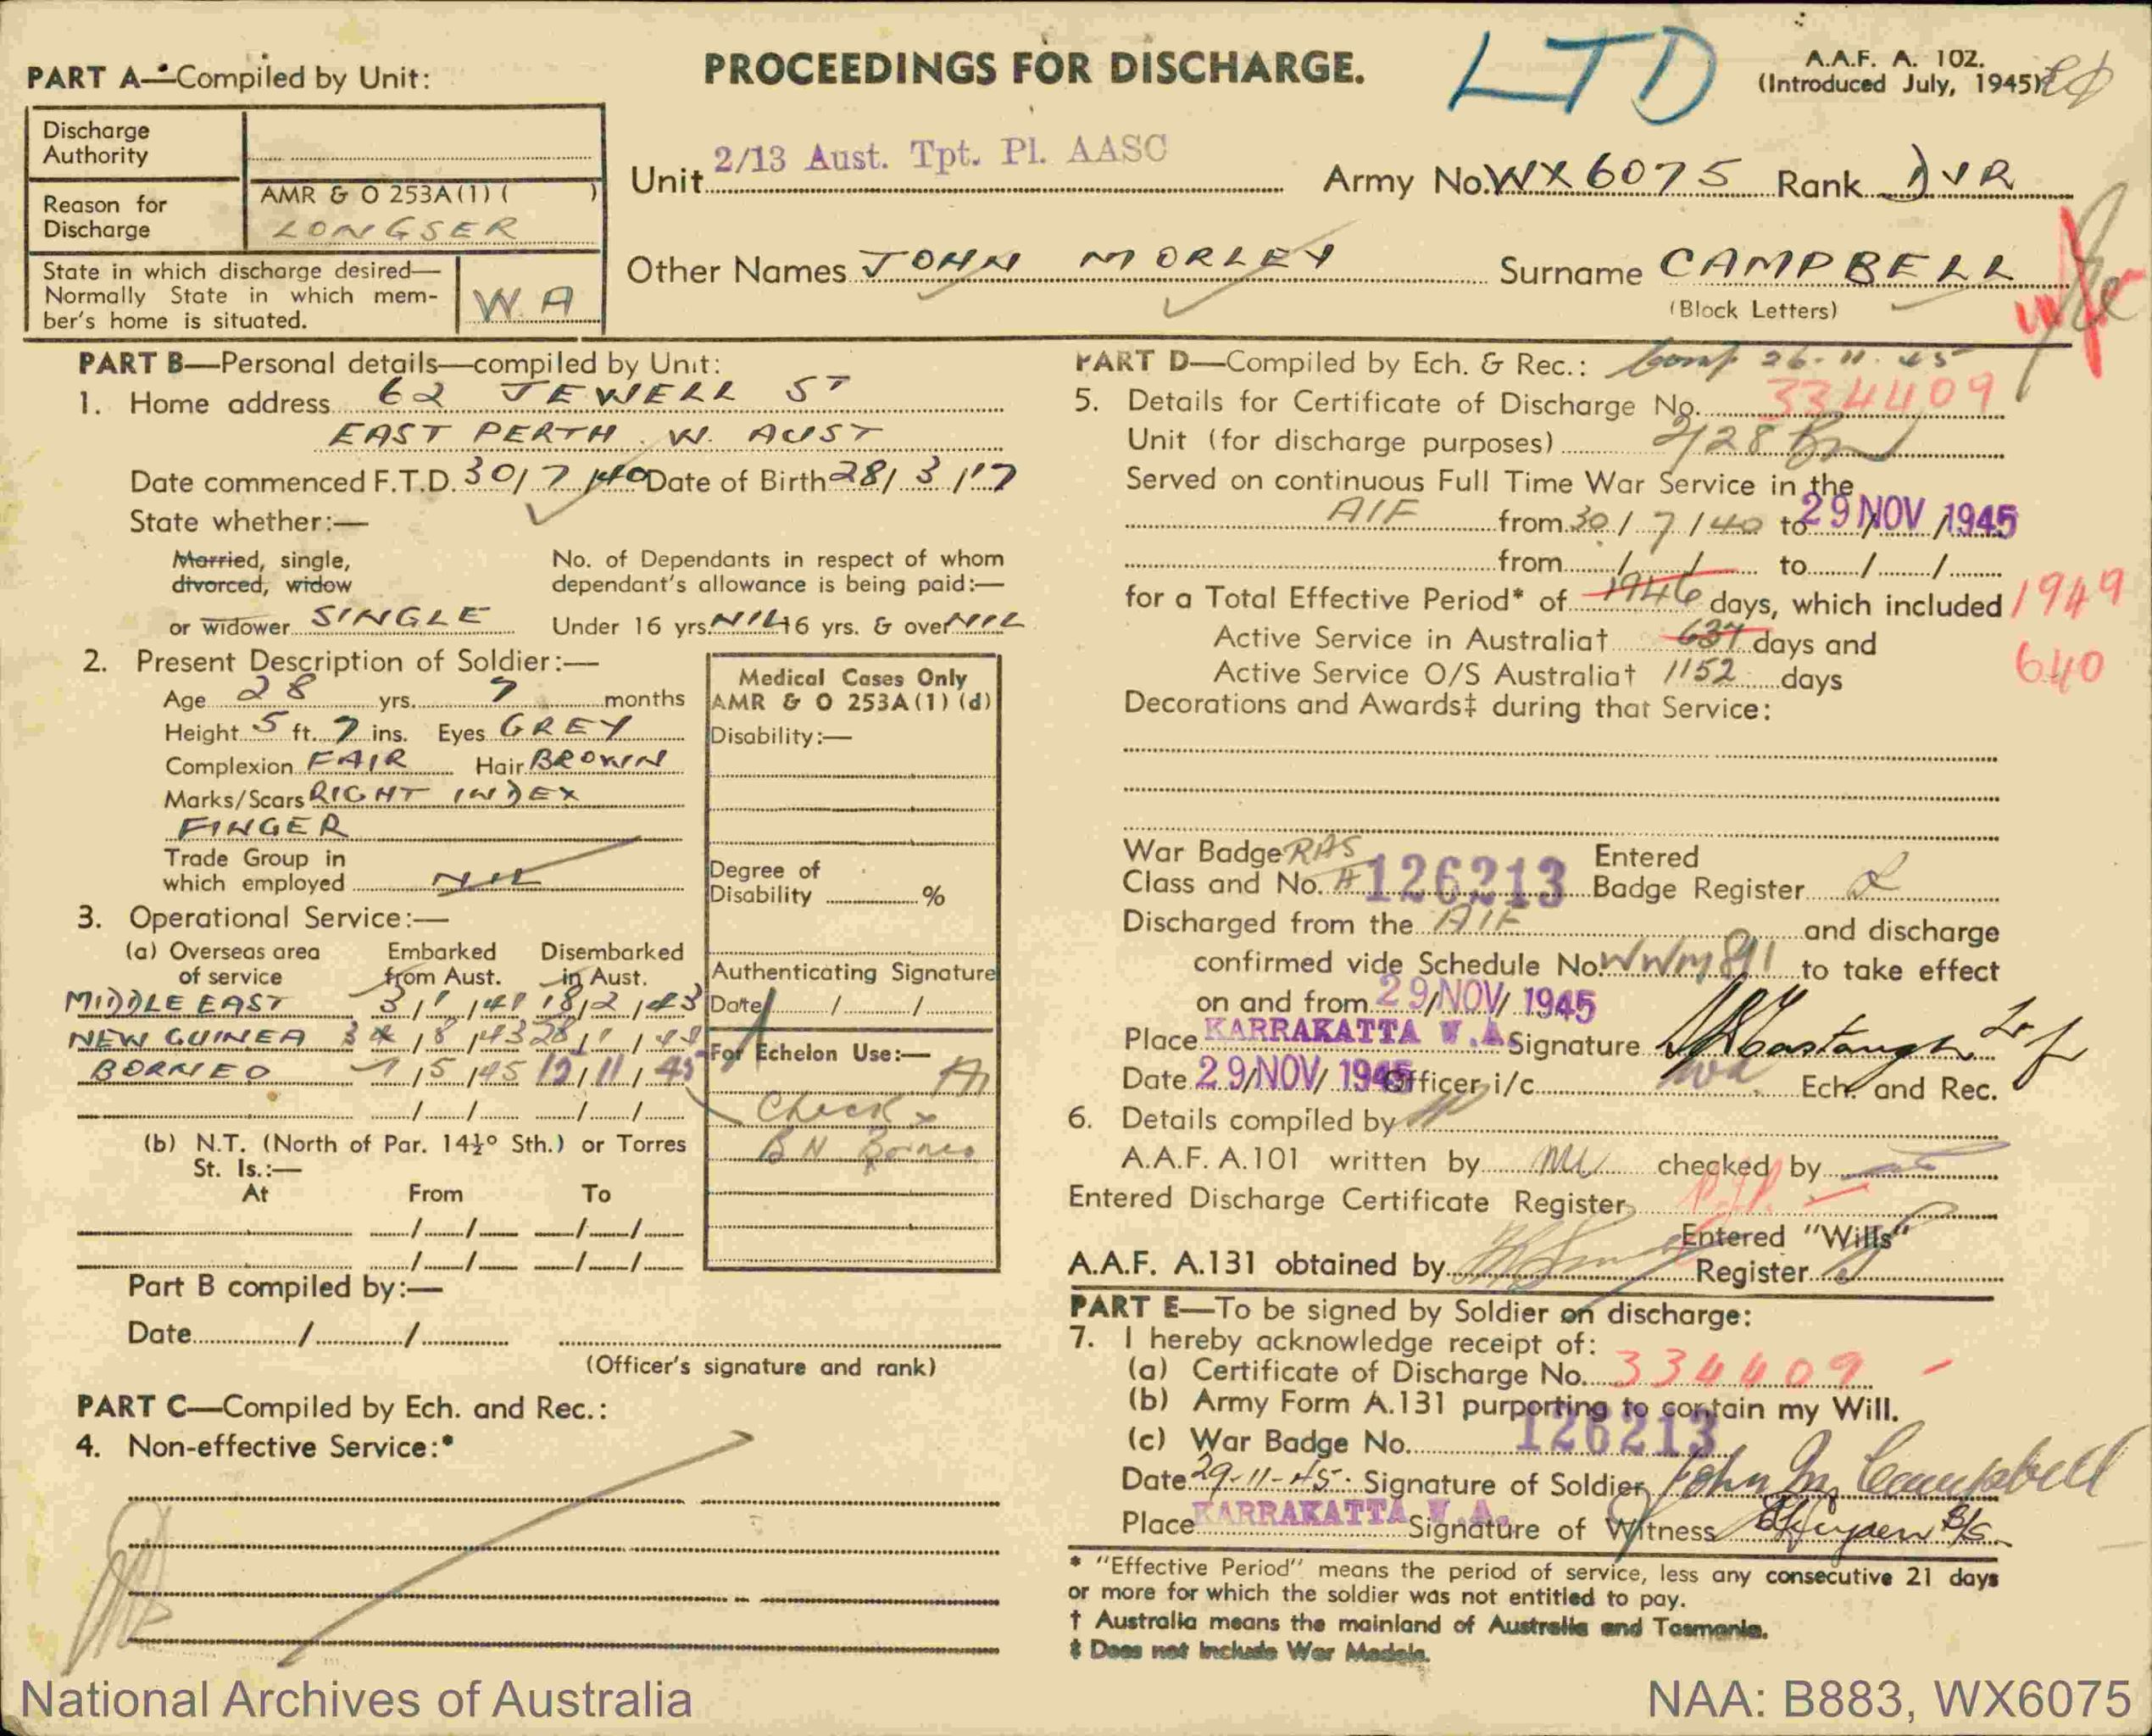 PROCEEDINGS FOR DISCHARGE.
LTD
A.A.F. A. 102.
(Introduced July, 1945)
PART A—Compiled by Unit:
Discharge
Authority
Reason for
Discharge
AMR & O 253A(1) ( )
LONGSER
State in which discharge desired—
Normally State in which mem-
ber's home is situated.
W.A
Unit 2/13 Aust. Tpt. Pl. AASC Army No. WX6075 Rank DVR
Other Names JOHN MORLEY Surname CAMPBELL
(Block Letters)
PART B—Personal details—compiled by Unit:
1. Home address 62 JEWELL ST
EAST PERTH. W. AUST
Date commenced F.T.D. 30/7/40 Date of Birth 28/3/17
State whether:—
Married, single,
divorced, widow
or widower SINGLE
No. of Dependants in respect of whom
dependant's allowance is being paid:—
Under 16 yrs. NIL 16 yrs. & over NIL
2. Present Description of Soldier:—
Age 28 yrs. 7 months
Height 5 ft. 7 ins. Eyes GREY
Complexion FAIR Hair BROWN
Marks/Scars RIGHT INDEX
FINGER
Trade Group in
which employed NIL
3. Operational Service:—
(a) Overseas area Embarked Disembarked
of service from Aust. in Aust.
MIDDLE EAST 3/1/41 18/2/43
NEW GUINEA /8/43 28/1/44
BORNEO 1/5/45 15/11/45
(b) N.T. (North of Par. 14½° Sth.) or Torres
St. Is.:—
At From To
Part B compiled by:—
Date / /
(Officer's signature and rank)
Medical Cases Only
AMR & O 253A(1) (d)
Disability:—
Degree of
Disability %
Authenticating Signature
Date / /
For Echelon Use:—
Check
BN Borneo
PART C—Compiled by Ech. and Rec.:
4. Non-effective Service:*
PART D—Compiled by Ech. & Rec.: Comp 26.11.45
5. Details for Certificate of Discharge No. 334409
Unit (for discharge purposes) 2/28 Bn
Served on continuous Full Time War Service in the
AIF from 30/7/40 to 29 NOV 1945
from / / to / /
for a Total Effective Period* of 1946 days, which included 1949
Active Service in Australia† 637 days and 640
Active Service O/S Australia† 1152 days
Decorations and Awards‡ during that Service:
War Badge RAS
Class and No. A 126213
Entered
Badge Register
Discharged from the AIF and discharge
confirmed vide Schedule No. WWM 891 to take effect
on and from 29/NOV/1945
Place KARRAKATTA W.A. Signature
Date 29/NOV/1945 Officer i/c Ech. and Rec.
6. Details compiled by
A.A.F. A.101 written by checked by
Entered Discharge Certificate Register
Entered "Wills"
A.A.F. A.131 obtained by Register
PART E—To be signed by Soldier on discharge:
7. I hereby acknowledge receipt of:
(a) Certificate of Discharge No. 334409
(b) Army Form A.131 purporting to contain my Will.
(c) War Badge No. 126213
Date 29-11-45. Signature of Soldier John M. Campbell
Place KARRAKATTA W.A. Signature of Witness
* "Effective Period" means the period of service, less any consecutive 21 days
or more for which the soldier was not entitled to pay.
† Australia means the mainland of Australia and Tasmania.
‡ Does not include War Medals.
National Archives of Australia
NAA: B883, WX6075